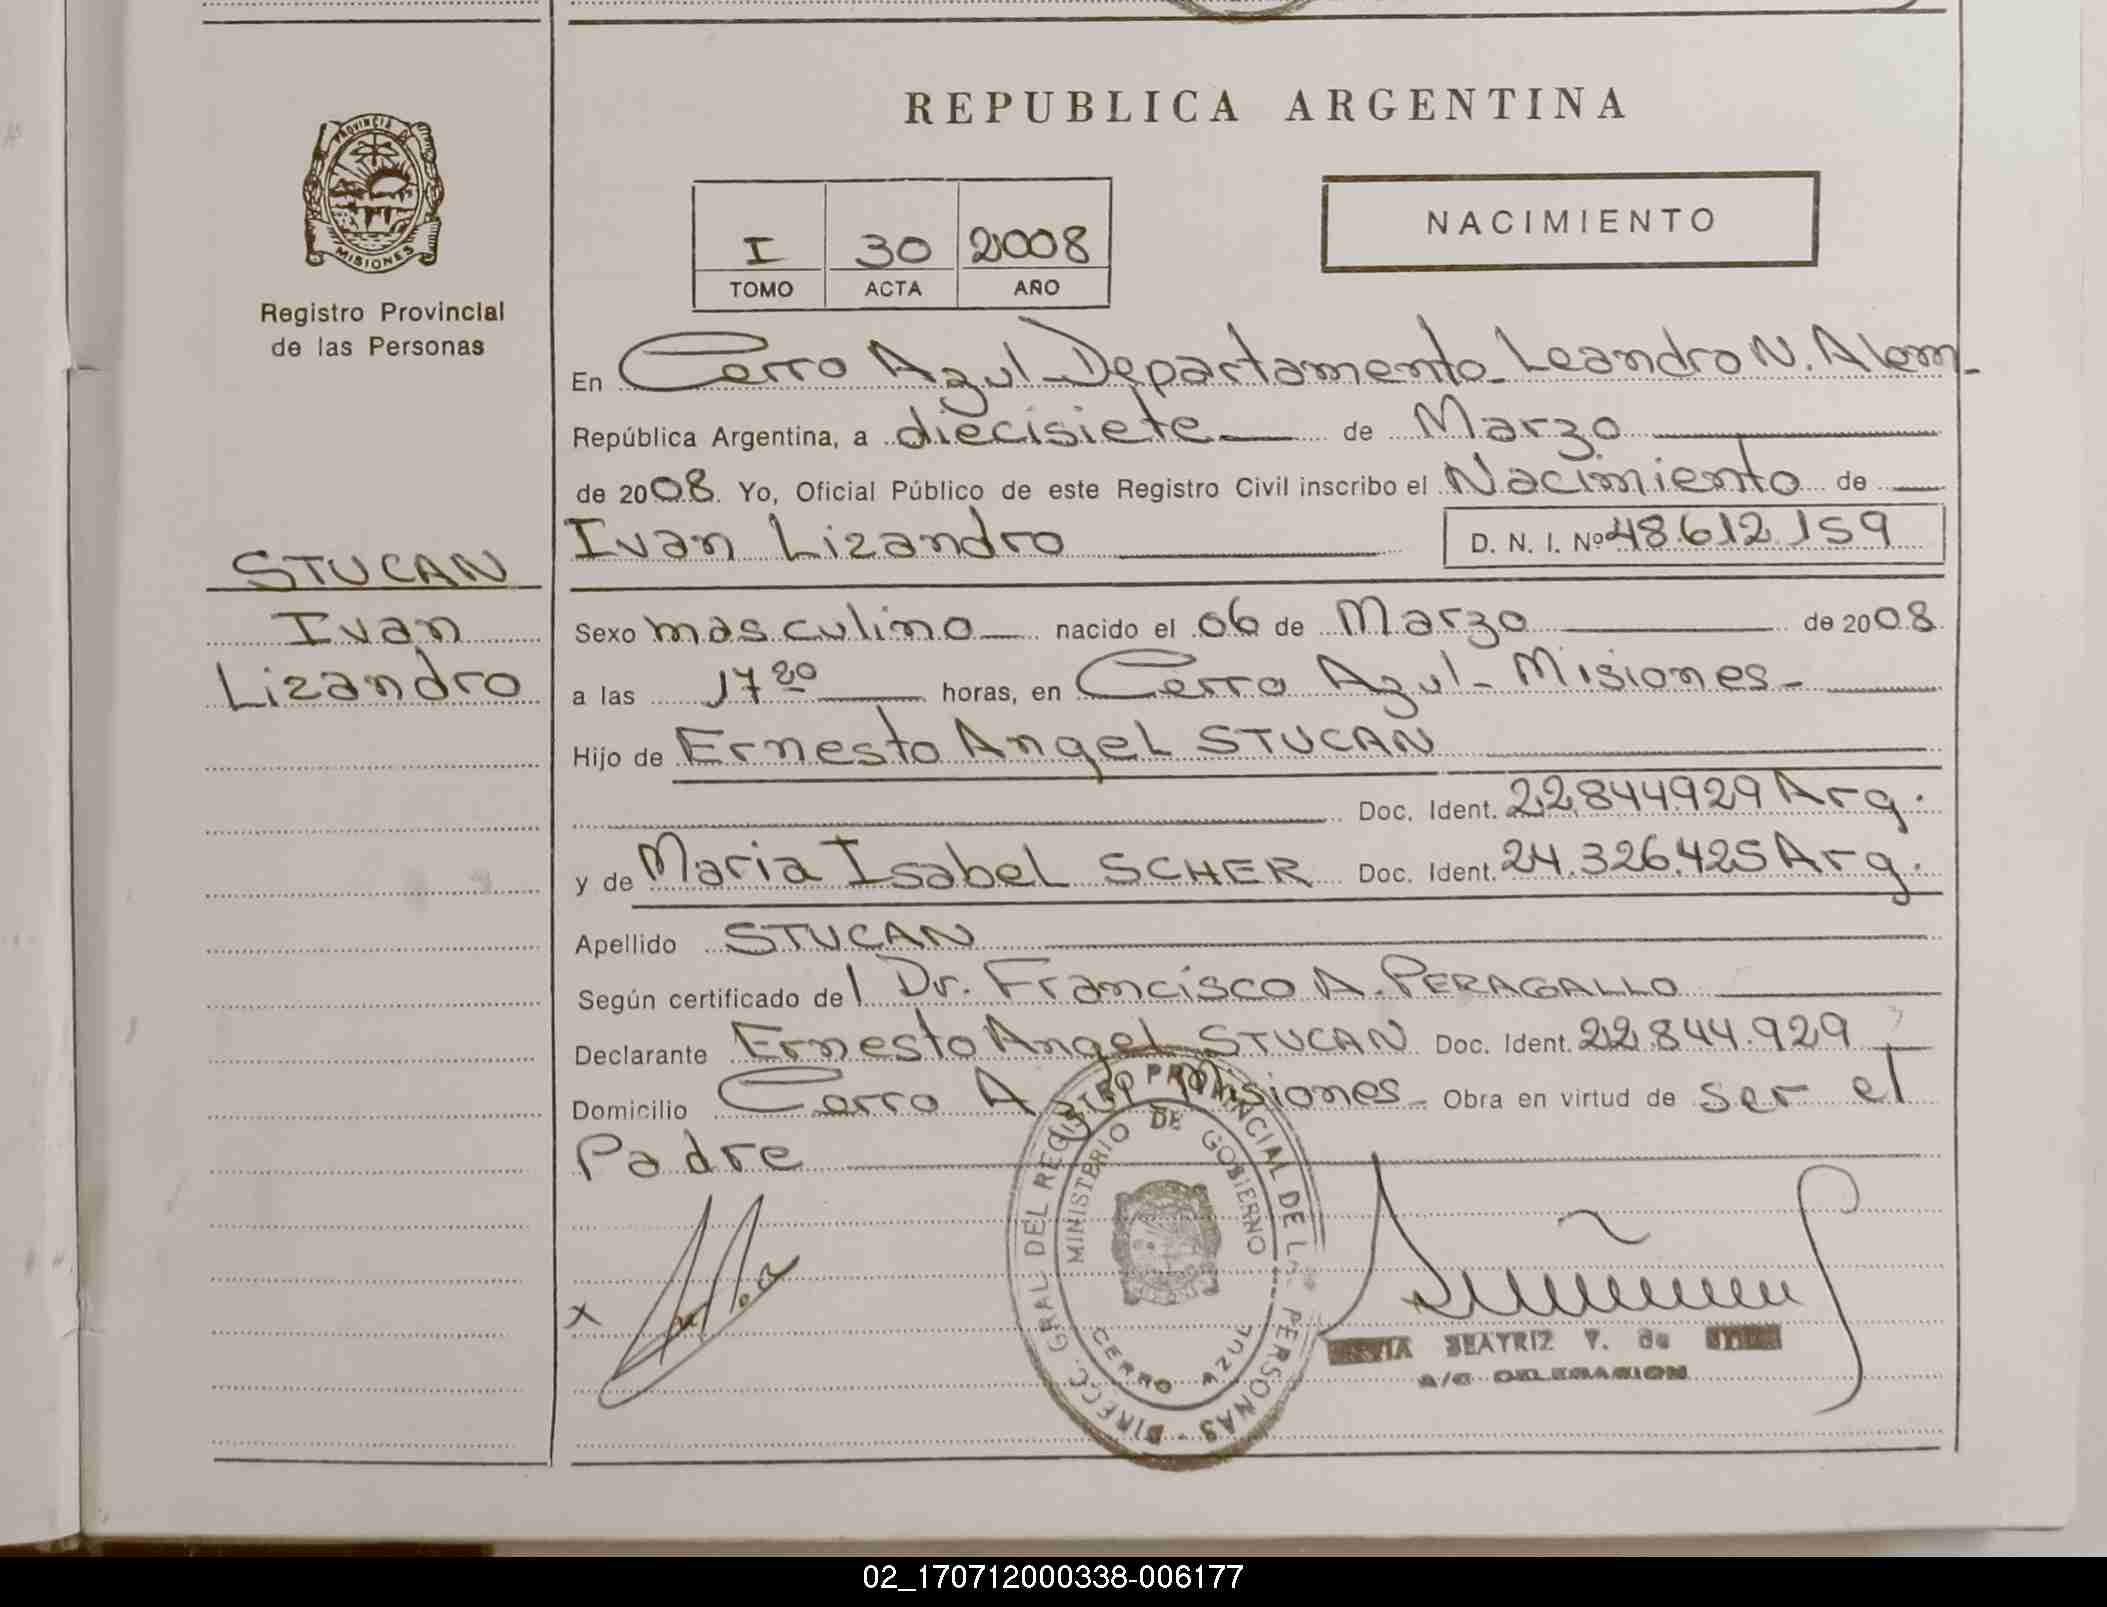 PROVINCIA DE
MISIONES
Registro Provincial
de las Personas
REPUBLICA ARGENTINA
NACIMIENTO
I 30 2008
TOMO ACTA AÑO
En Cerro Azul - Departamento - Leandro N. Alem -
República Argentina, a diecisiete de Marzo
de 2008. Yo, Oficial Público de este Registro Civil inscribo el Nacimiento de
Ivan Lizandro D. N. I. Nº 48.612.159
STUCAN
Ivan
Lizandro
Sexo masculino nacido el 06 de Marzo de 2008
a las 17 horas, en Cerro Azul - Misiones -
Hijo de Ernesto Angel STUCAN
Doc. Ident. 22.844929 Arg.
y de Maria Isabel SCHER Doc. Ident. 24.326.425 Arg.
Apellido STUCAN
Según certificado del Dr. Francisco A. PERAGALLO
Declarante Ernesto Angel STUCAN Doc. Ident. 22.844.929
Domicilio Cerro A Misiones - Obra en virtud de ser el
Padre
DIRECC. GRAL DEL REGISTRO PROVINCIAL DE LAS PERSONAS -
MINISTERIO DE GOBIERNO
CERRO AZUL
x
BEATRIZ V. de
A/C DELEGACION
02_170712000338-006177